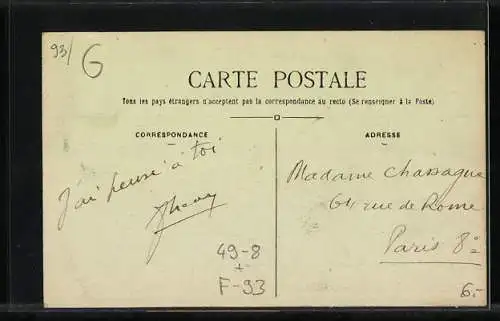 93/ G
CARTE POSTALE
Tous les pays étrangers n'acceptent pas la correspondance au recto (Se renseigner à la Poste)
CORRESPONDANCE
ADRESSE
J'ai pensé à toi
Madame Chassagne
64 rue de Rome
Paris 8e
49-8
+
F-93
6.-